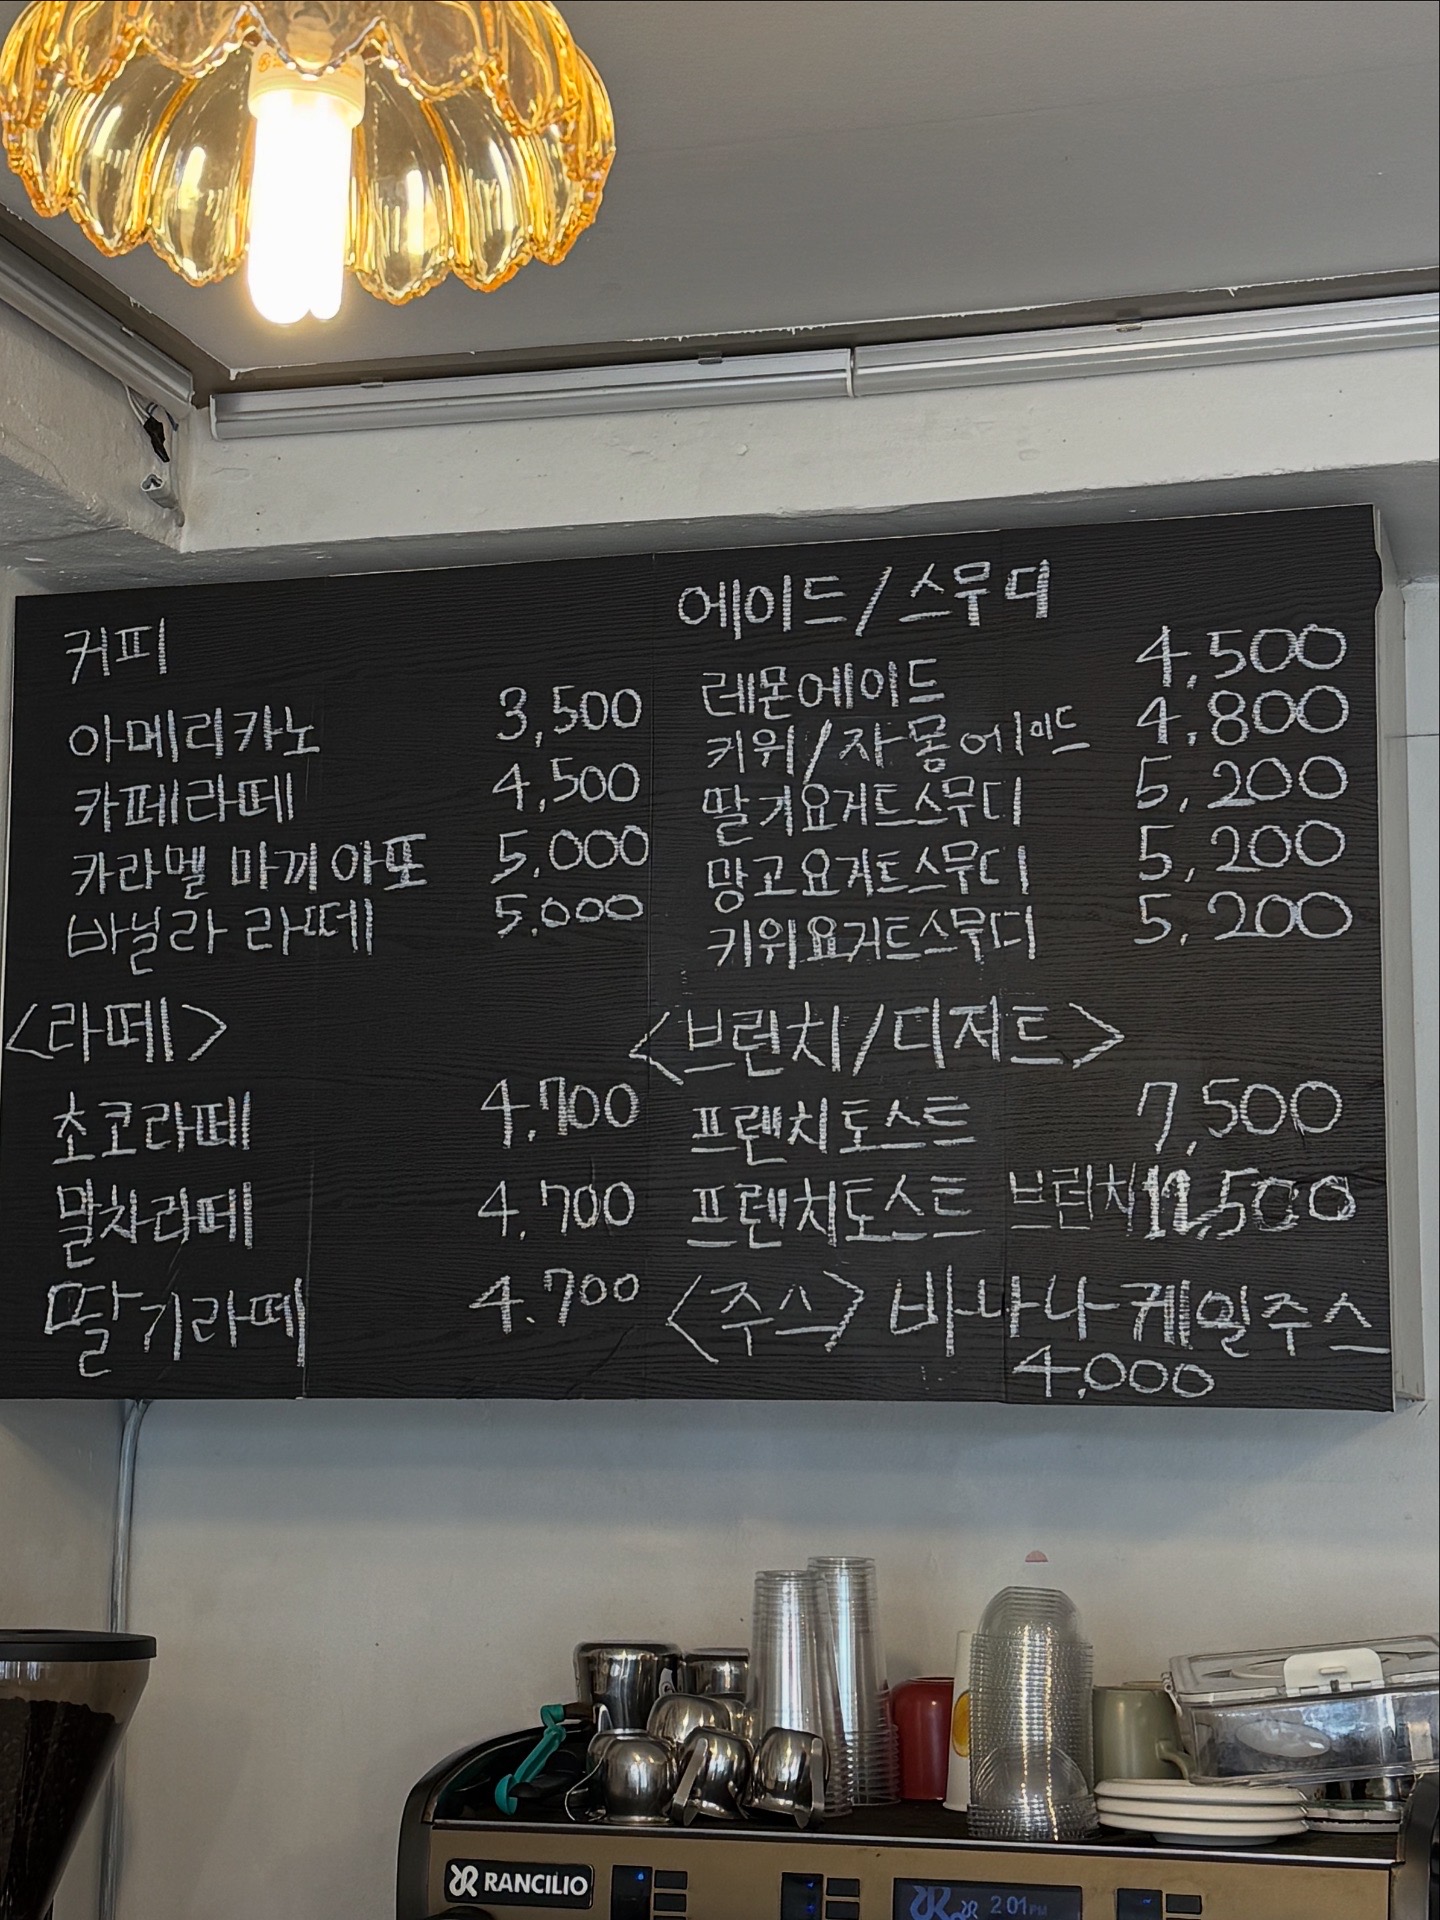 커피
아메리카노 3,500
카페라떼 4,500
카라멜 마끼아또 5,000
바닐라 라떼 5.000
<라떼>
초코라떼 4.700
말차라떼 4.700
딸기라떼 4.700
에이드/스무디
레몬에이드 4,500
키위/자몽에이드 4.800
딸기요거트스무디 5,200
망고요거트스무디 5,200
키위요거트스무디 5,200
<브런치/디저트>
프렌치토스트 7,500
프렌치토스트 브런치
<주스> 바나나케일주스
4.000
RANCILIO
2:01 PM